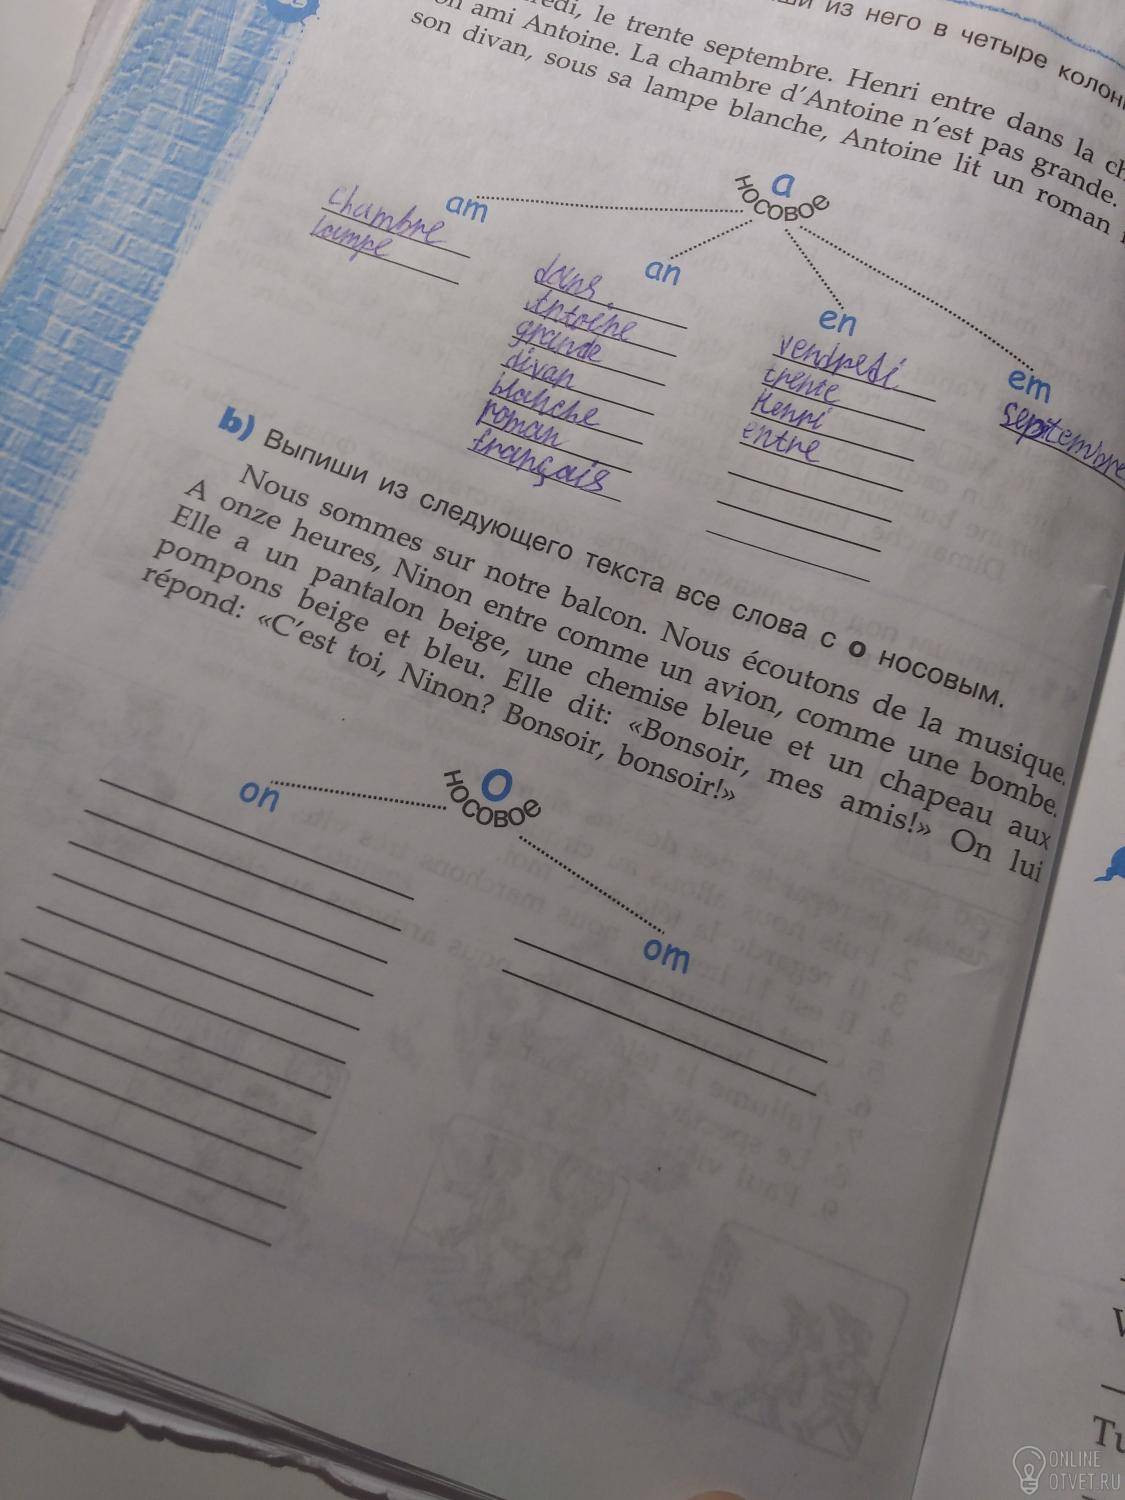 ши из него в четыре колон
edi, le trente septembre. Henri entre dans la ch
on ami Antoine. La chambre d'Antoine n'est pas grande.
son divan, sous sa lampe blanche, Antoine lit un roman
a
носовое
am
chambre
lampe
an
dans
Antoine
grande
divan
blanche
roman
français
en
vendredi
trente
Henri
entre
em
septembre
b) Выпиши из следующего текста все слова с о носовым.
Nous sommes sur notre balcon. Nous écoutons de la musique.
A onze heures, Ninon entre comme un avion, comme une bombe.
Elle a un pantalon beige, une chemise bleue et un chapeau aux
pompons beige et bleu. Elle dit: «Bonsoir, mes amis!» On lui
répond: «C'est toi, Ninon? Bonsoir, bonsoir!»
о
носовое
on
om
Tu
ONLINE
OTVET.RU